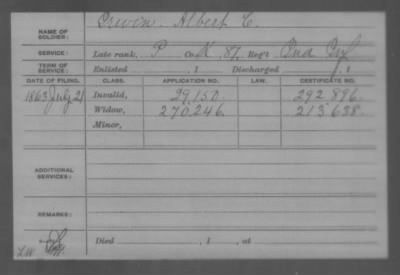 NAME OF SOLDIER: Albert C.
SERVICE: Late rank, P Co. K, 87, Reg't Ind Inf
TERM OF SERVICE: Enlisted , 1 Discharged , 1
DATE OF FILING. CLASS. APPLICATION NO. LAW. CERTIFICATE NO.
1863 July 21 Invalid, 29,150. 292 896.
Widow, 270,246. 213 638.
Minor,
ADDITIONAL SERVICES:
REMARKS:
Died , 1 , at